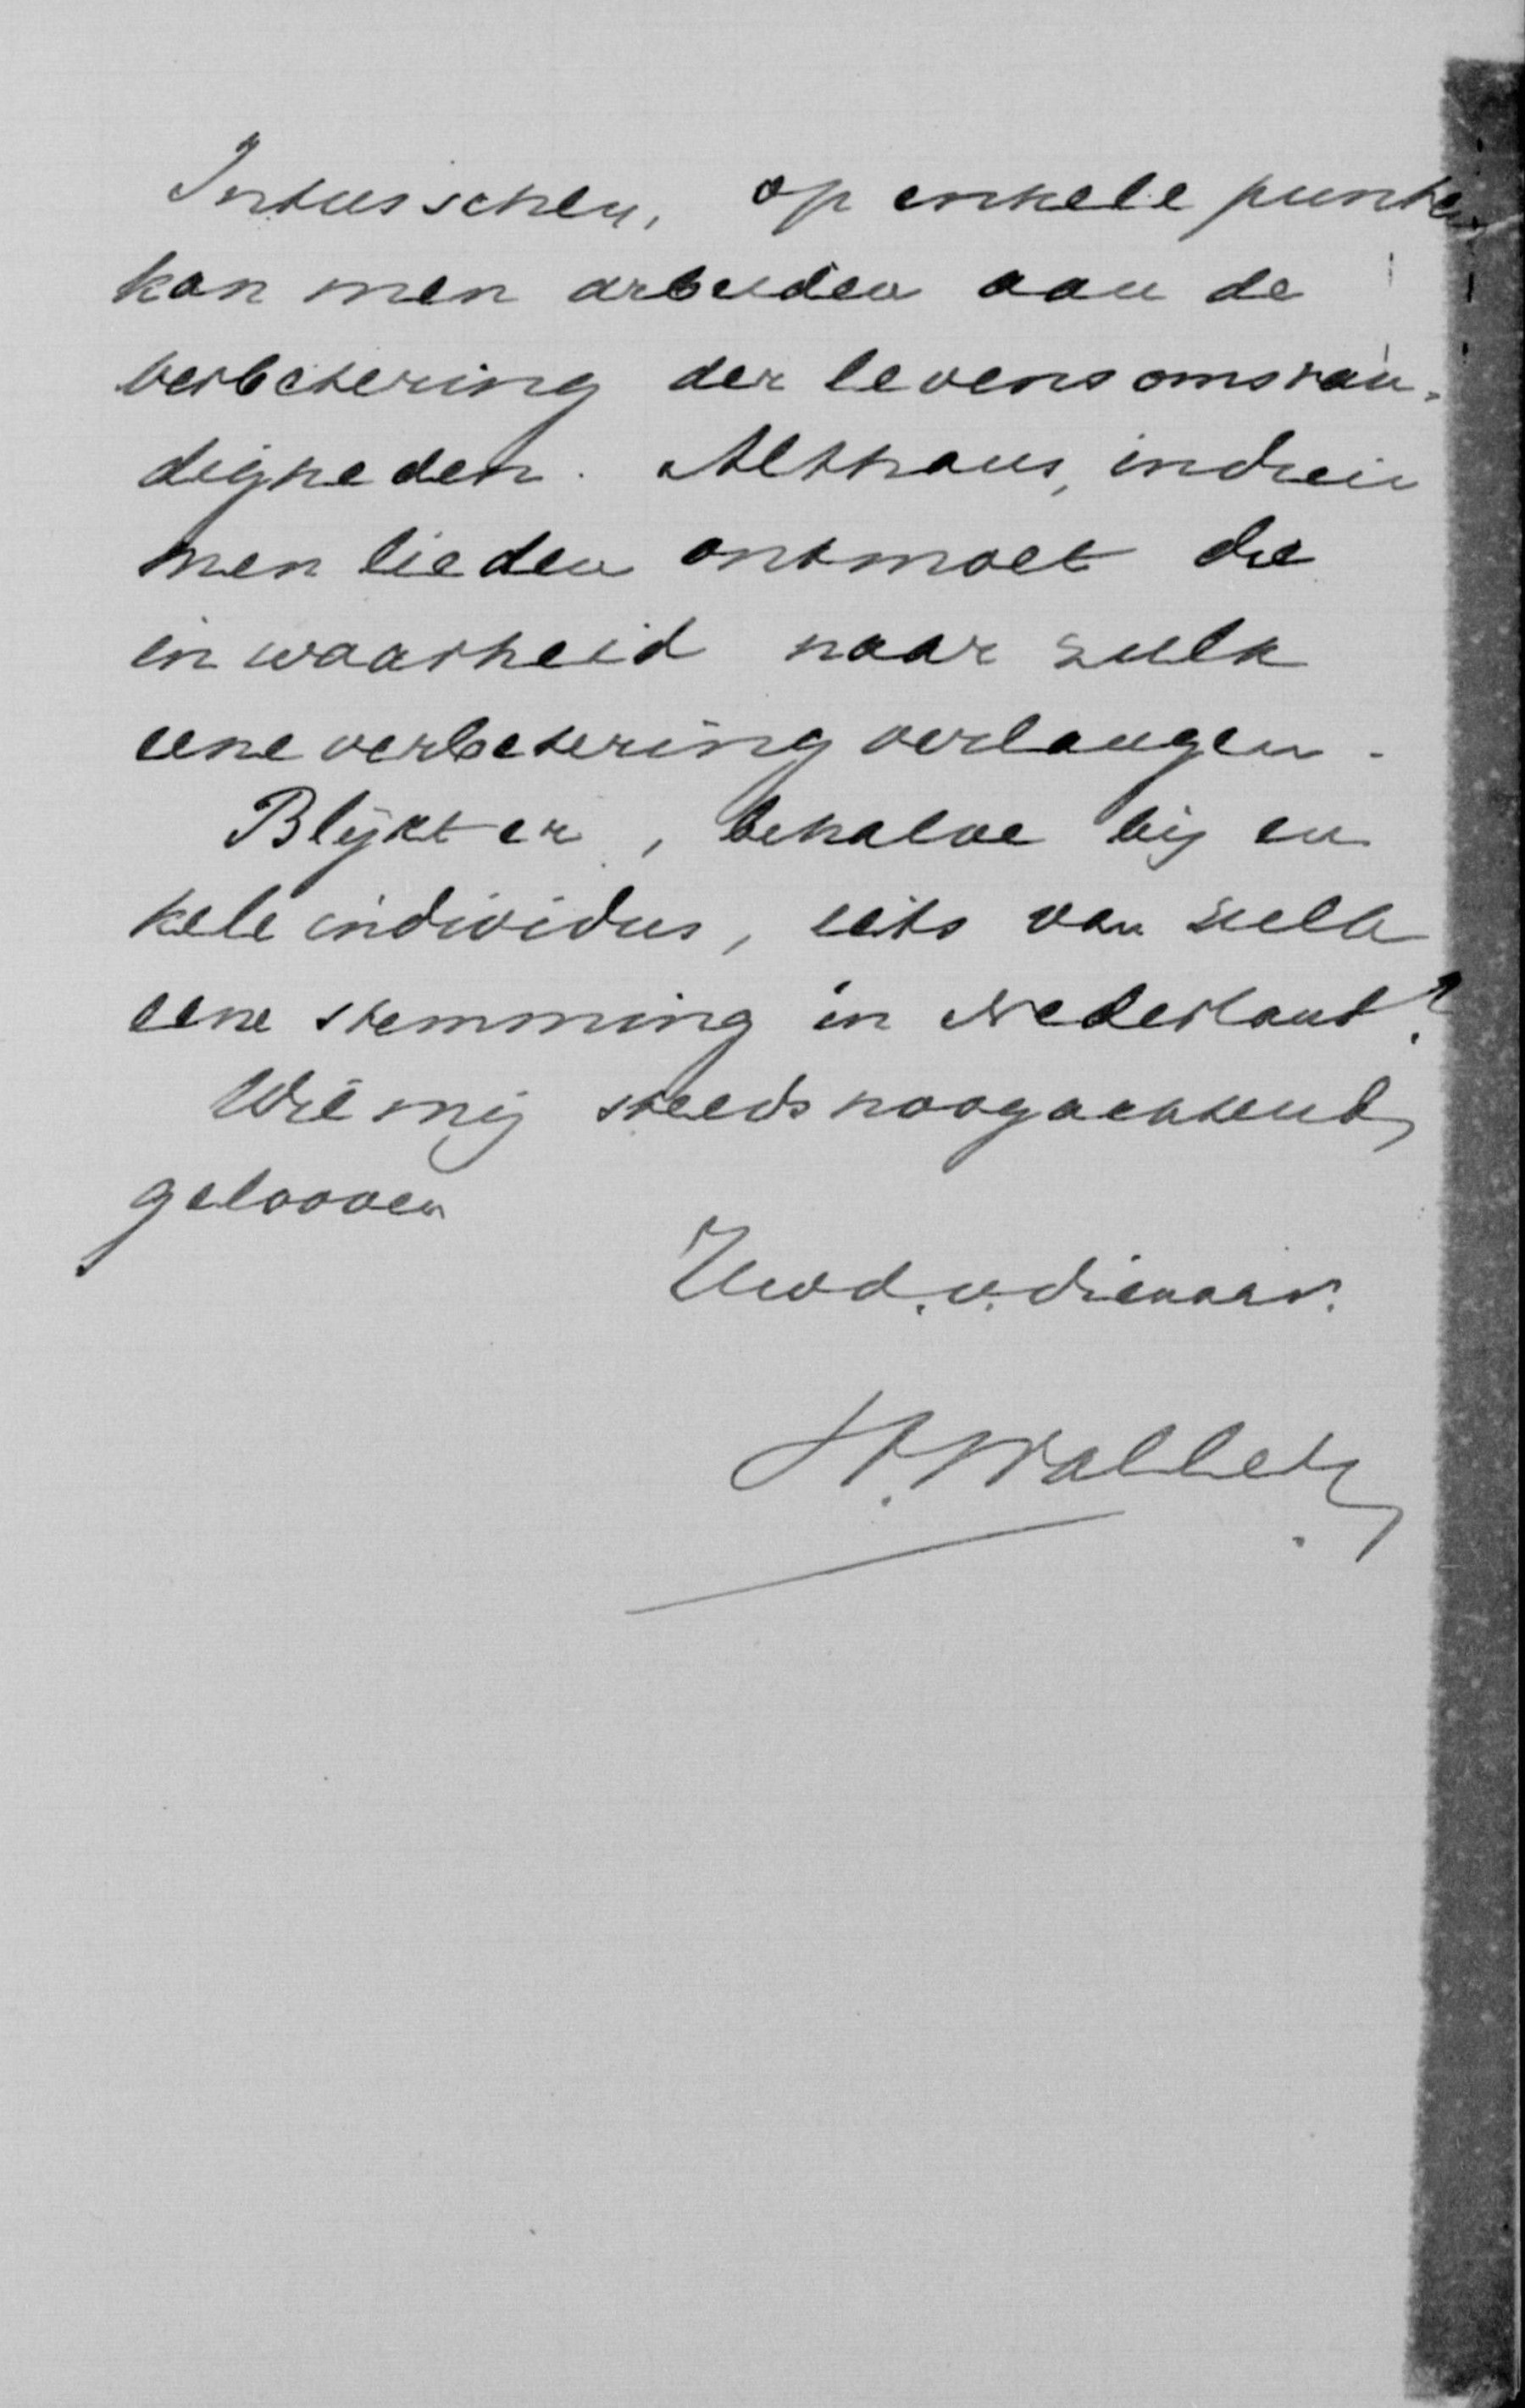 Intusschen, op enkele punten
kan men arbeiden aan de
verbetering der levensomstan-
digheden. Althans, indien
men lieden ontmoet die
in waarheid naar zulk
eene verbetering verlangen.
Blijkt er, behalve bij en
kele individus, iets van zulk
eene stemming in Nederland?
Wil mij steeds hoogachtend
gelooven
Uwd.v.dienaar.